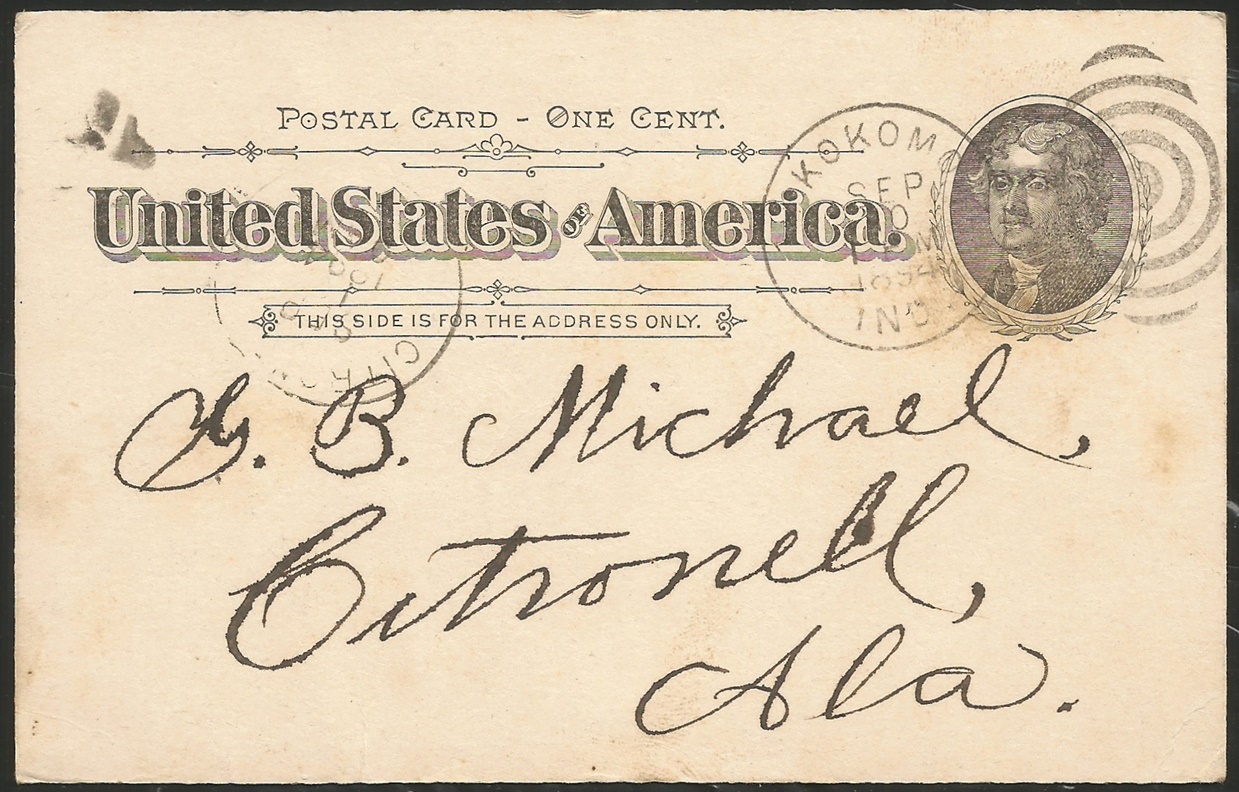 POSTAL CARD - ONE CENT.
United States OF America.
THIS SIDE IS FOR THE ADDRESS ONLY.
KOKOMO
SEP
M
1894
IND
JEFFERSON
CITRON
1894
B. Michael,
Citronell,
Ala.